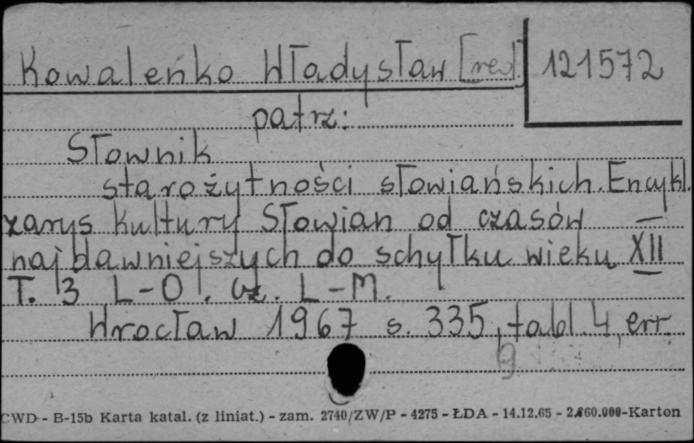 Kowaleńko Władysław [red] 121572
patrz:
Słownik
starożytności słowiańskich. Encykl.
zarys kultury Słowian od czasów
najdawniejszych do schyłku wieku XII
T. 3 L-O. cz. L-M.
Wrocław 1967 s. 335, tabl. 4, err.
9
CWD - B-15b Karta katal. (z liniat.) - zam. 2740/ZW/P - 4275 - ŁDA - 14.12.65 - 2.860.000-Karton